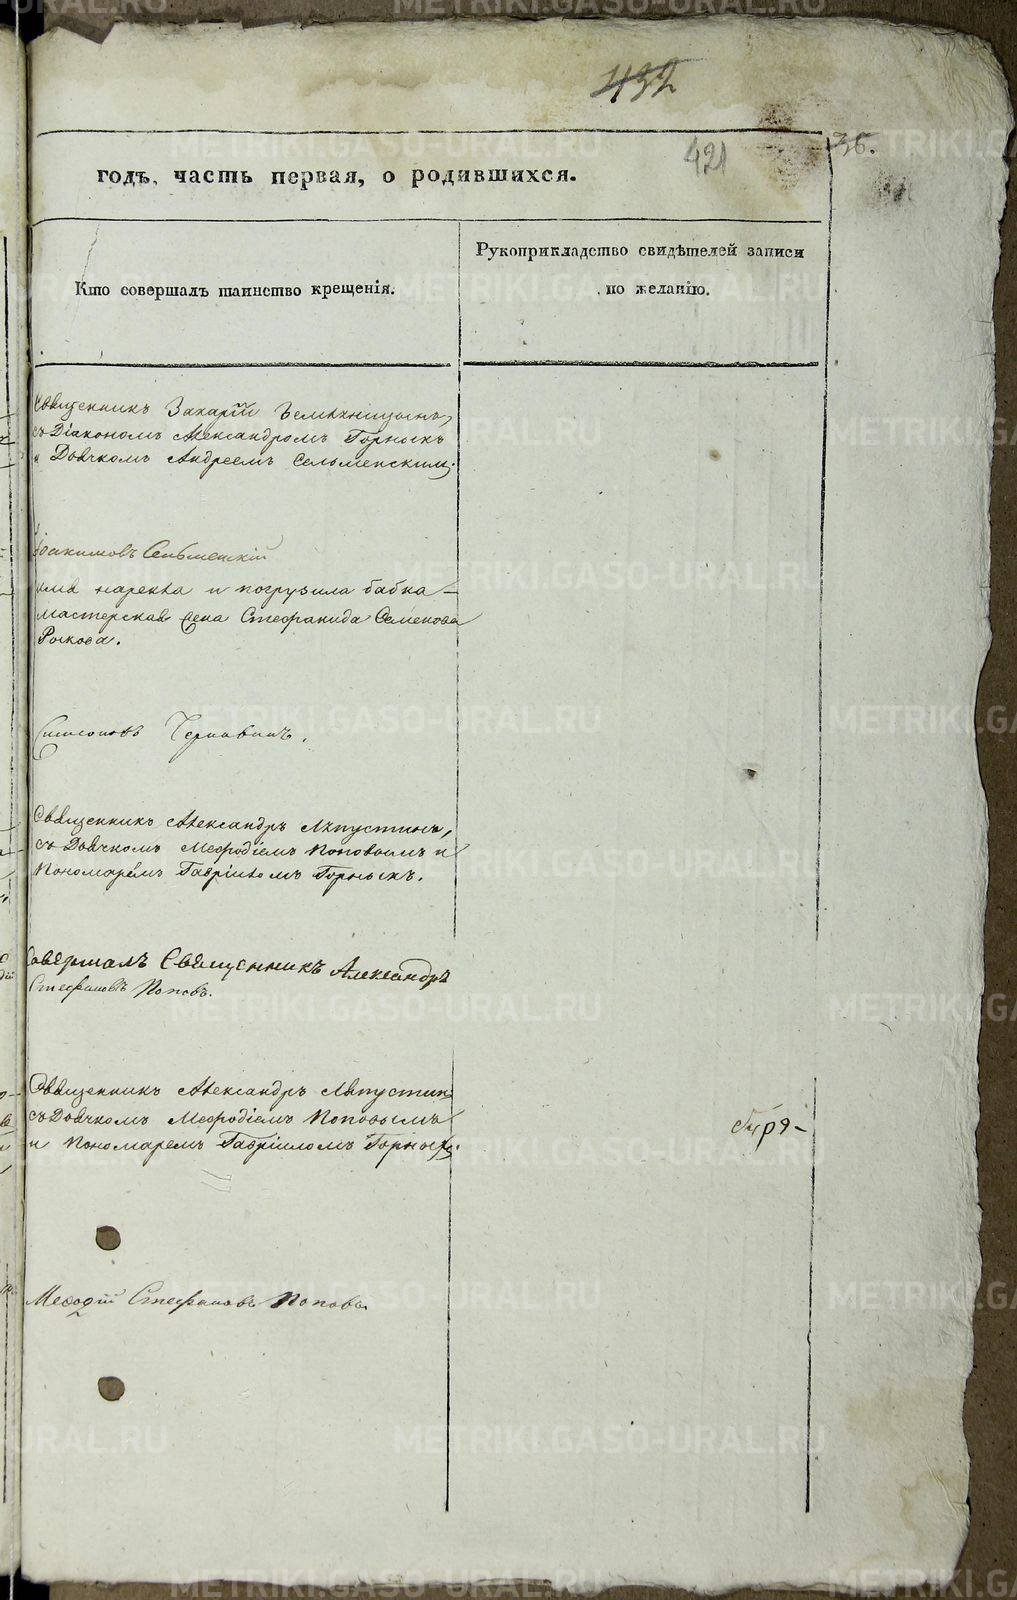 432
421
36.
годъ, часть первая, о родившихся.
Кто совершалъ таинство крещенія.
Рукоприкладство свидѣтелей записи
по желанію.
Священникъ Захарій
съ Діакономъ Александромъ Горныхъ
и Дьячкомъ Андреемъ Сельменскимъ.
Іоакимовъ Сельменскій
имя нарекла и погрузила бабка
мастерская жена Стефанида Семенова
Симеоновъ Чернавинъ.
Священникъ Александръ Ляпустинъ,
съ Дьячкомъ Меѳодіемъ Поповымъ и
Пономарёмъ Гавріиломъ Горныхъ.
Совершалъ Священникъ Александръ
Стефановъ Поповъ.
Священникъ Александръ Ляпустинъ
съ Дьячкомъ Меѳодіемъ Поповымъ
и Пономаремъ Гавріиломъ Горныхъ.
Меѳодій Стефановъ Поповъ
METRIKI.GASO-URAL.RU